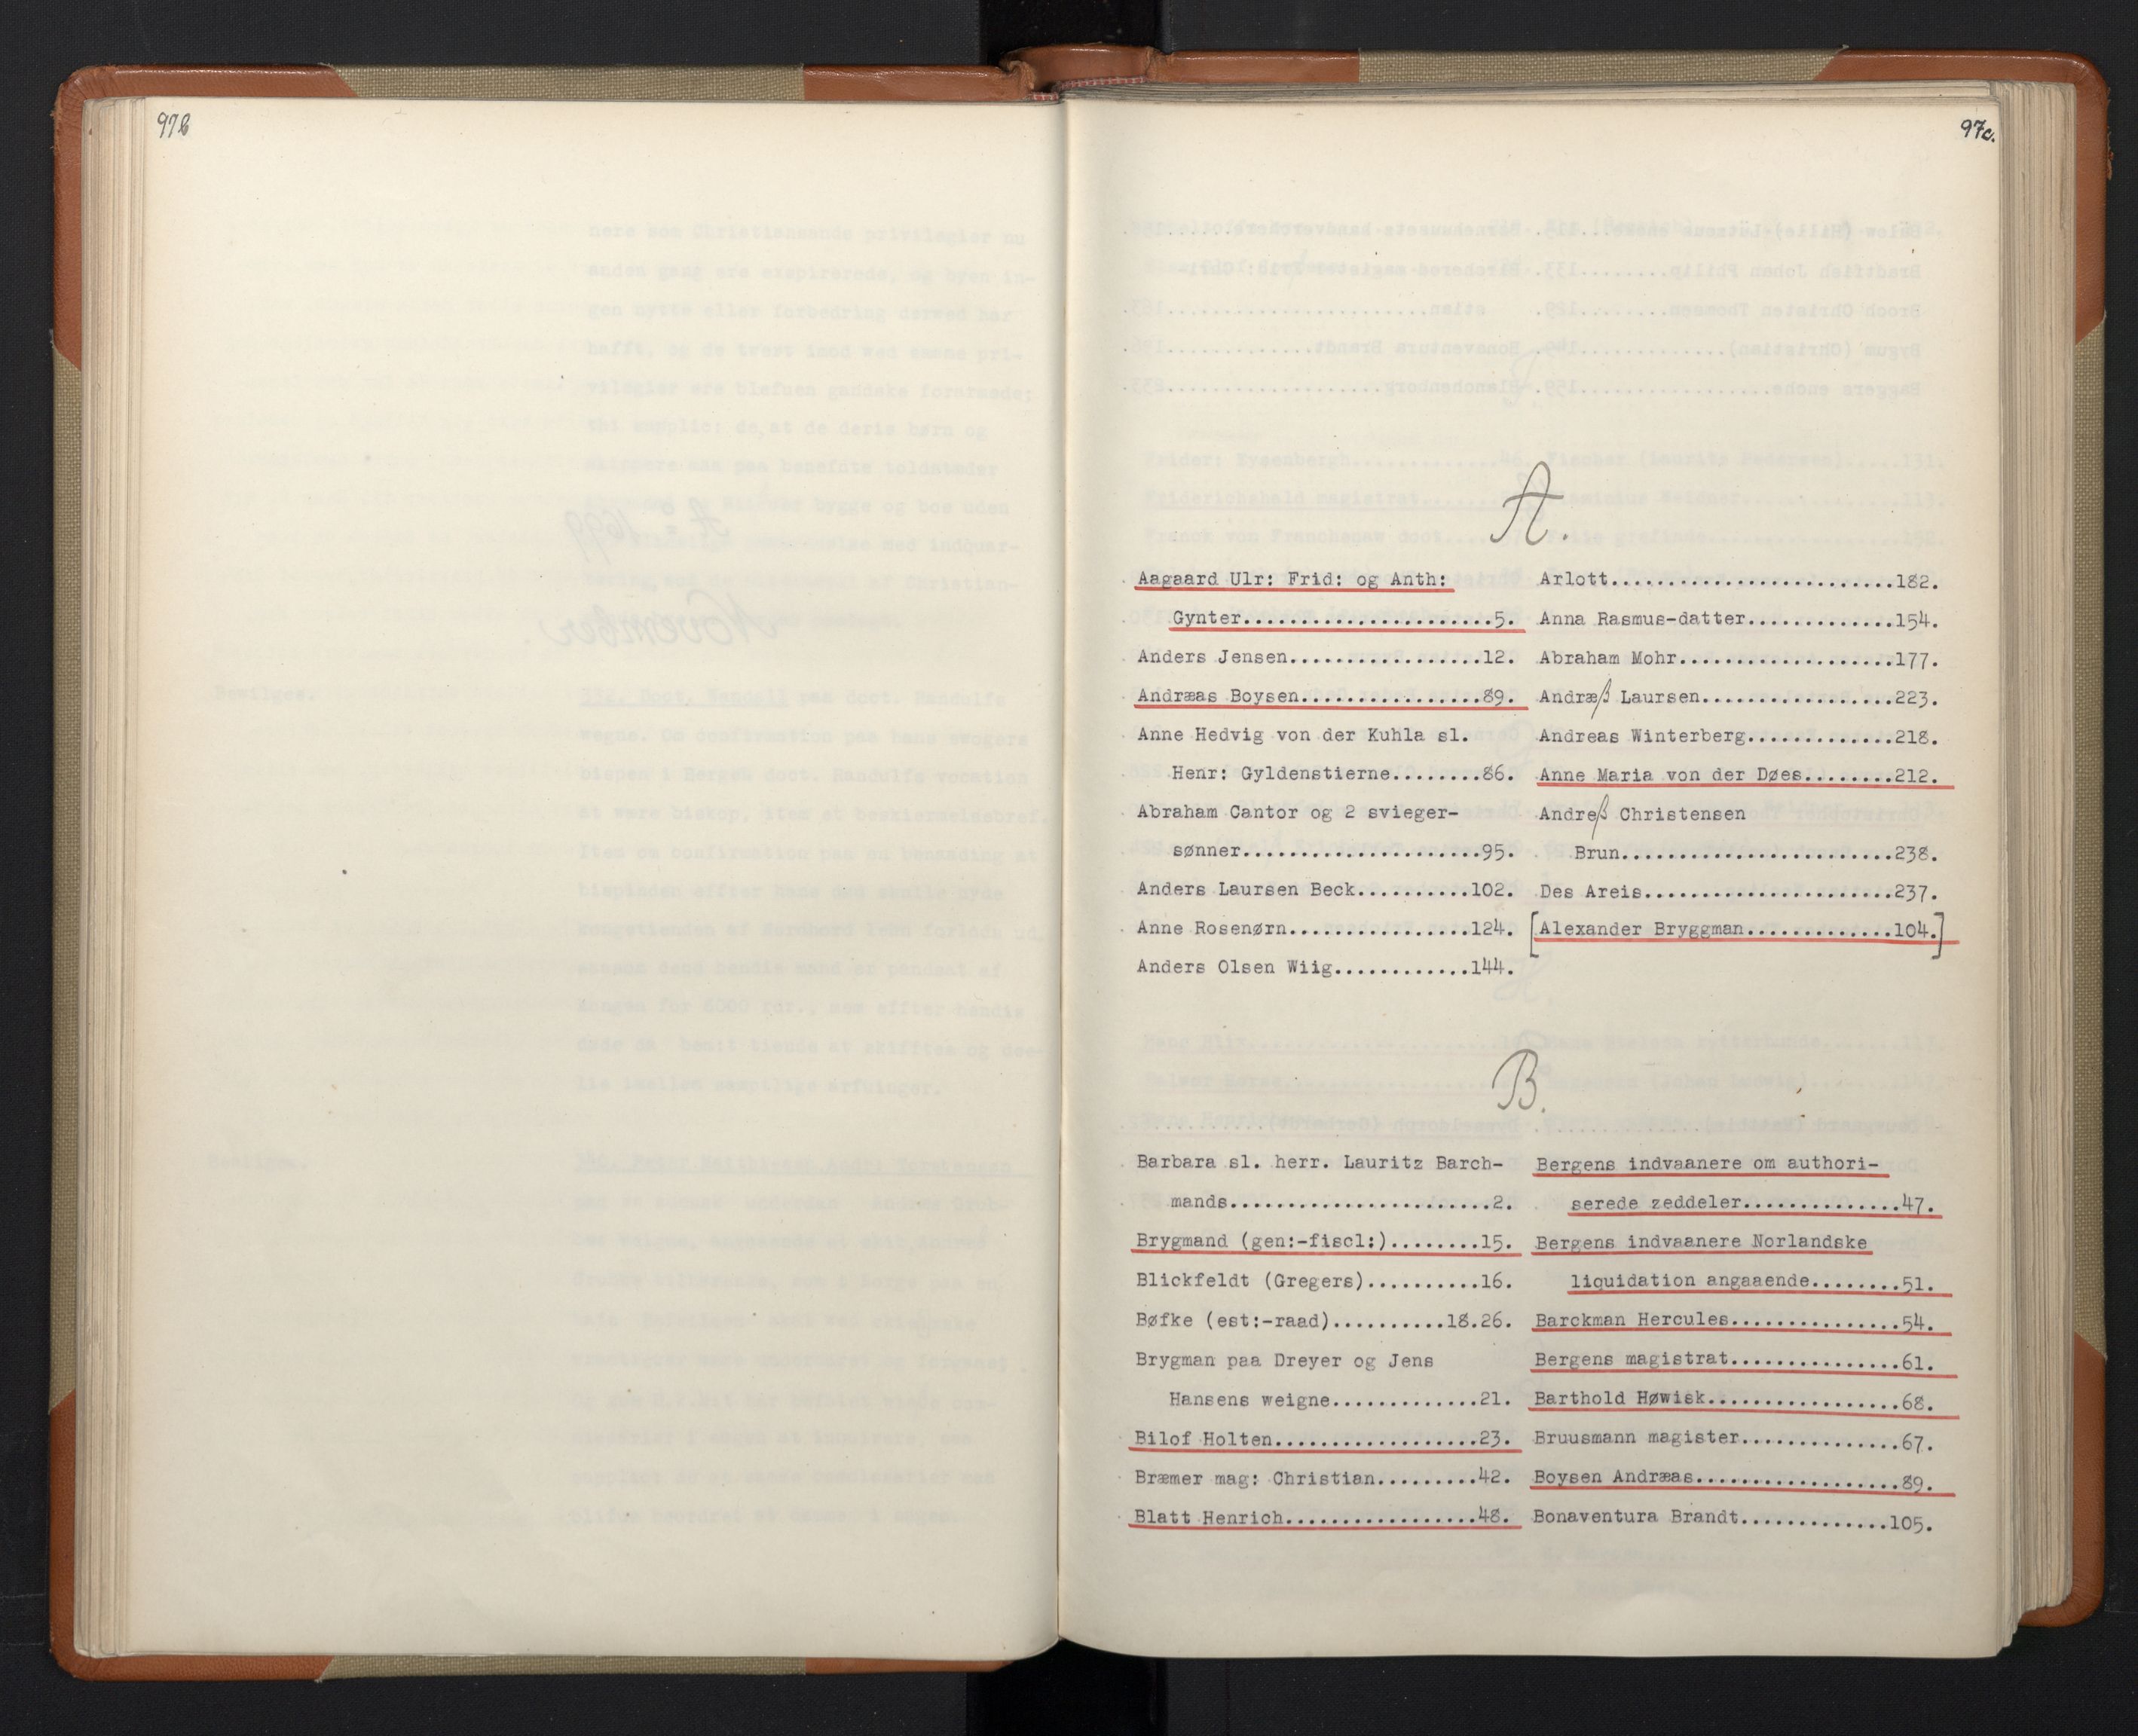 97b
97c.
A.
Aagaard Ulr: Frid: og Anth:
Gynter......................5.
Anders Jensen.................12.
Andræas Boysen................89.
Anne Hedvig von der Kuhla sl.
Henr: Gyldenstierne........86.
Abraham Cantor og 2 svieger-
sønner.....................95.
Anders Laursen Beck..........102.
Anne Rosenørn................124.
Anders Olsen Wiig............144.
Arlott.........................182.
Anna Rasmus-datter.............154.
Abraham Mohr...................177.
Andræß Laursen.................223.
Andreas Winterberg.............218.
Anne Maria von der Døes........212.
Andreß Christensen
Brun........................238.
Des Areis......................237.
[Alexander Bryggman.............104.]
B.
Barbara sl. herr. Lauritz Barch-
mands.......................2.
Brygmand (gen:-fiscl:)........15.
Blickfeldt (Gregers)..........16.
Bøfke (est:-raad)..........18.26.
Brygman paa Dreyer og Jens
Hansens weigne.............21.
Bilof Holten..................23.
Bræmer mag: Christian.........42.
Blatt Henrich.................48.
Bergens indvaanere om authori-
serede zeddeler..............47.
Bergens indvaanere Norlandske
liquidation angaaende........51.
Barckman Hercules...............54.
Bergens magistrat...............61.
Barthold Høwisk.................68.
Bruusmann magister..............67.
Boysen Andræas..................89.
Bonaventura Brandt.............105.